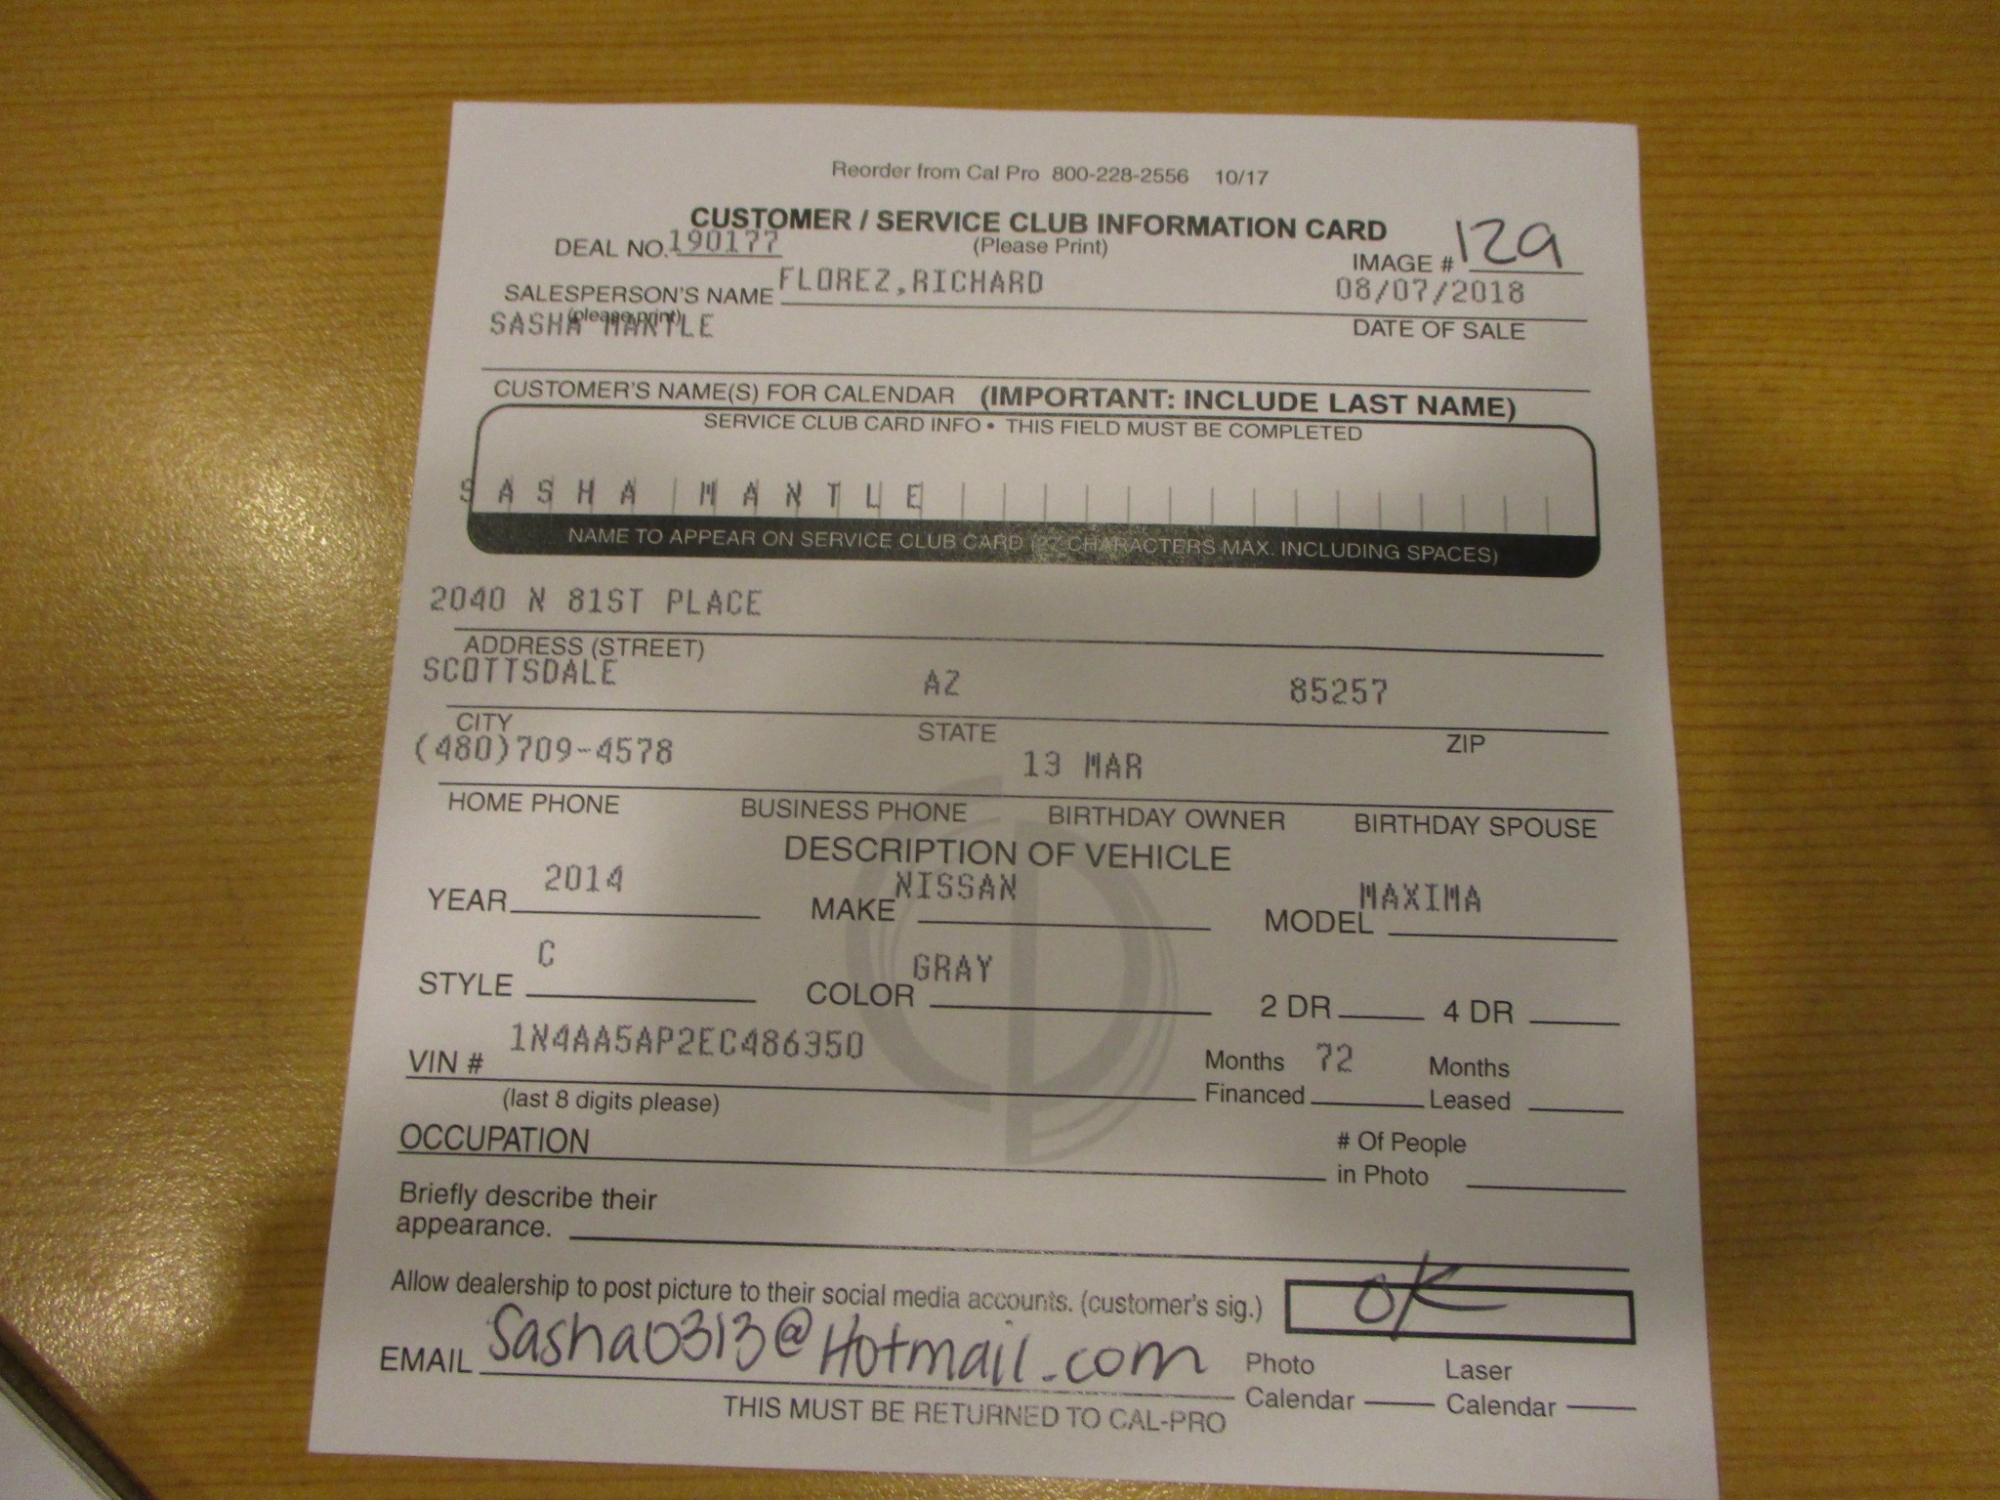 Reorder from Cal Pro 800-228-2556 10/17
CUSTOMER / SERVICE CLUB INFORMATION CARD
DEAL NO. 190177 (Please Print) IMAGE # 129
SALESPERSON'S NAME FLOREZ,RICHARD 08/07/2018
(please print) DATE OF SALE
SASHA MANTLE
CUSTOMER'S NAME(S) FOR CALENDAR (IMPORTANT: INCLUDE LAST NAME)
SERVICE CLUB CARD INFO • THIS FIELD MUST BE COMPLETED
SASHA MANTLE
NAME TO APPEAR ON SERVICE CLUB CARD (27 CHARACTERS MAX. INCLUDING SPACES)
2040 N 81ST PLACE
ADDRESS (STREET)
SCOTTSDALE AZ 85257
CITY STATE ZIP
(480)709-4578 13 MAR
HOME PHONE BUSINESS PHONE BIRTHDAY OWNER BIRTHDAY SPOUSE
DESCRIPTION OF VEHICLE
YEAR 2014 MAKE NISSAN MODEL MAXIMA
STYLE C COLOR GRAY 2 DR 4 DR
VIN # 1N4AA5AP2EC486350 Months 72 Months
(last 8 digits please) Financed Leased
OCCUPATION # Of People
in Photo
Briefly describe their
appearance.
Allow dealership to post picture to their social media accounts. (customer's sig.) OK
EMAIL Sasha0313@Hotmail.com Photo Laser
Calendar Calendar
THIS MUST BE RETURNED TO CAL-PRO